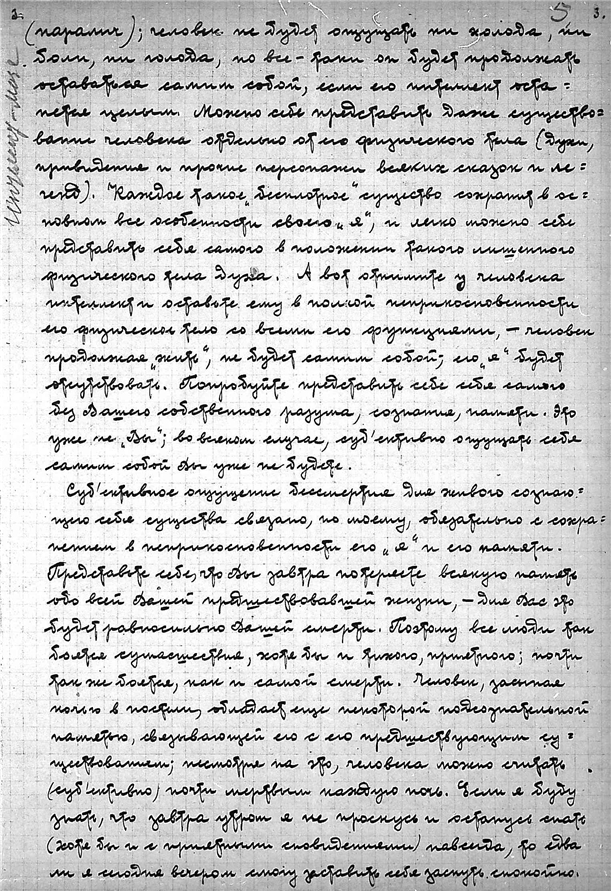 3. 5 3.
(паралич); человек не будет ощущать ни холода, ни
боли, ни голода, но все-таки он будет продолжать
оставаться самим собой, если его интеллект оста=
нется целым. Можно себе представить даже существо=
вание человека отдельно от его физического тела (духи,
привидения и прочие персонажи всяких сказок и ле=
генд). Каждое такое „бесплотное" существо сохранит в ос=
новном все особенности своего „я", и легко можно себе
представить себя самого в положении такого лишенного
физического тела духа. А вот отнимите у человека
интеллект и оставьте ему в полной неприкосновенности
его физическое тело со всеми его функциями, — человек
продолжая „жить", не будет самим собой; его „я" будет
отсутствовать. Попробуйте представить себе себя самого
без Вашего собственного разума, сознания, памяти. Это
уже не „Вы"; во всяком случае, суб'ективно ощущать себя
самим собой Вы уже не будете.
Суб'ективное ощущение бессмертия для живого сознаю=
щего себя существа связано, по моему, обязательно с сохра=
нением в неприкосновенности его „я" и его памяти.
Представьте себе, что Вы завтра потеряете всякую память
обо всей Вашей предшествовавшей жизни, — для Вас это
будет равносильно Вашей смерти. Поэтому все люди так
боятся сумасшествия, хотя бы и тихого, приятного; почти
так же боятся, как и самой смерти. Человек, засыпая
ночью в постели, обладает еще некоторой подсознательной
памятью, связывающей его с его предшествующим су=
ществованием; несмотря на это, человека можно считать
(суб'ективно) почти мертвым каждую ночь. Если я буду
знать, что завтра утром я не проснусь и останусь спать
(хотя бы и с приятными сновидениями) навсегда, то едва
ли я сегодня вечером смогу заставить себя заснуть спокойно.